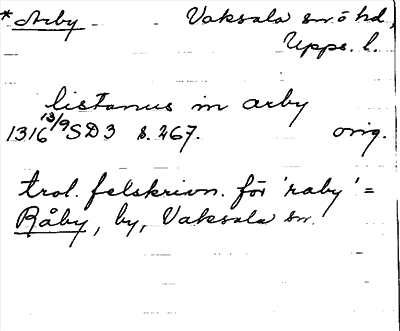 * Arby Vaksala sn o hd,
Upps. l.
listanus in arby
1316 13/9 SD3 s. 267. orig.
trol. felskrivn. för 'raby' =
Råby, by, Vaksala sn.